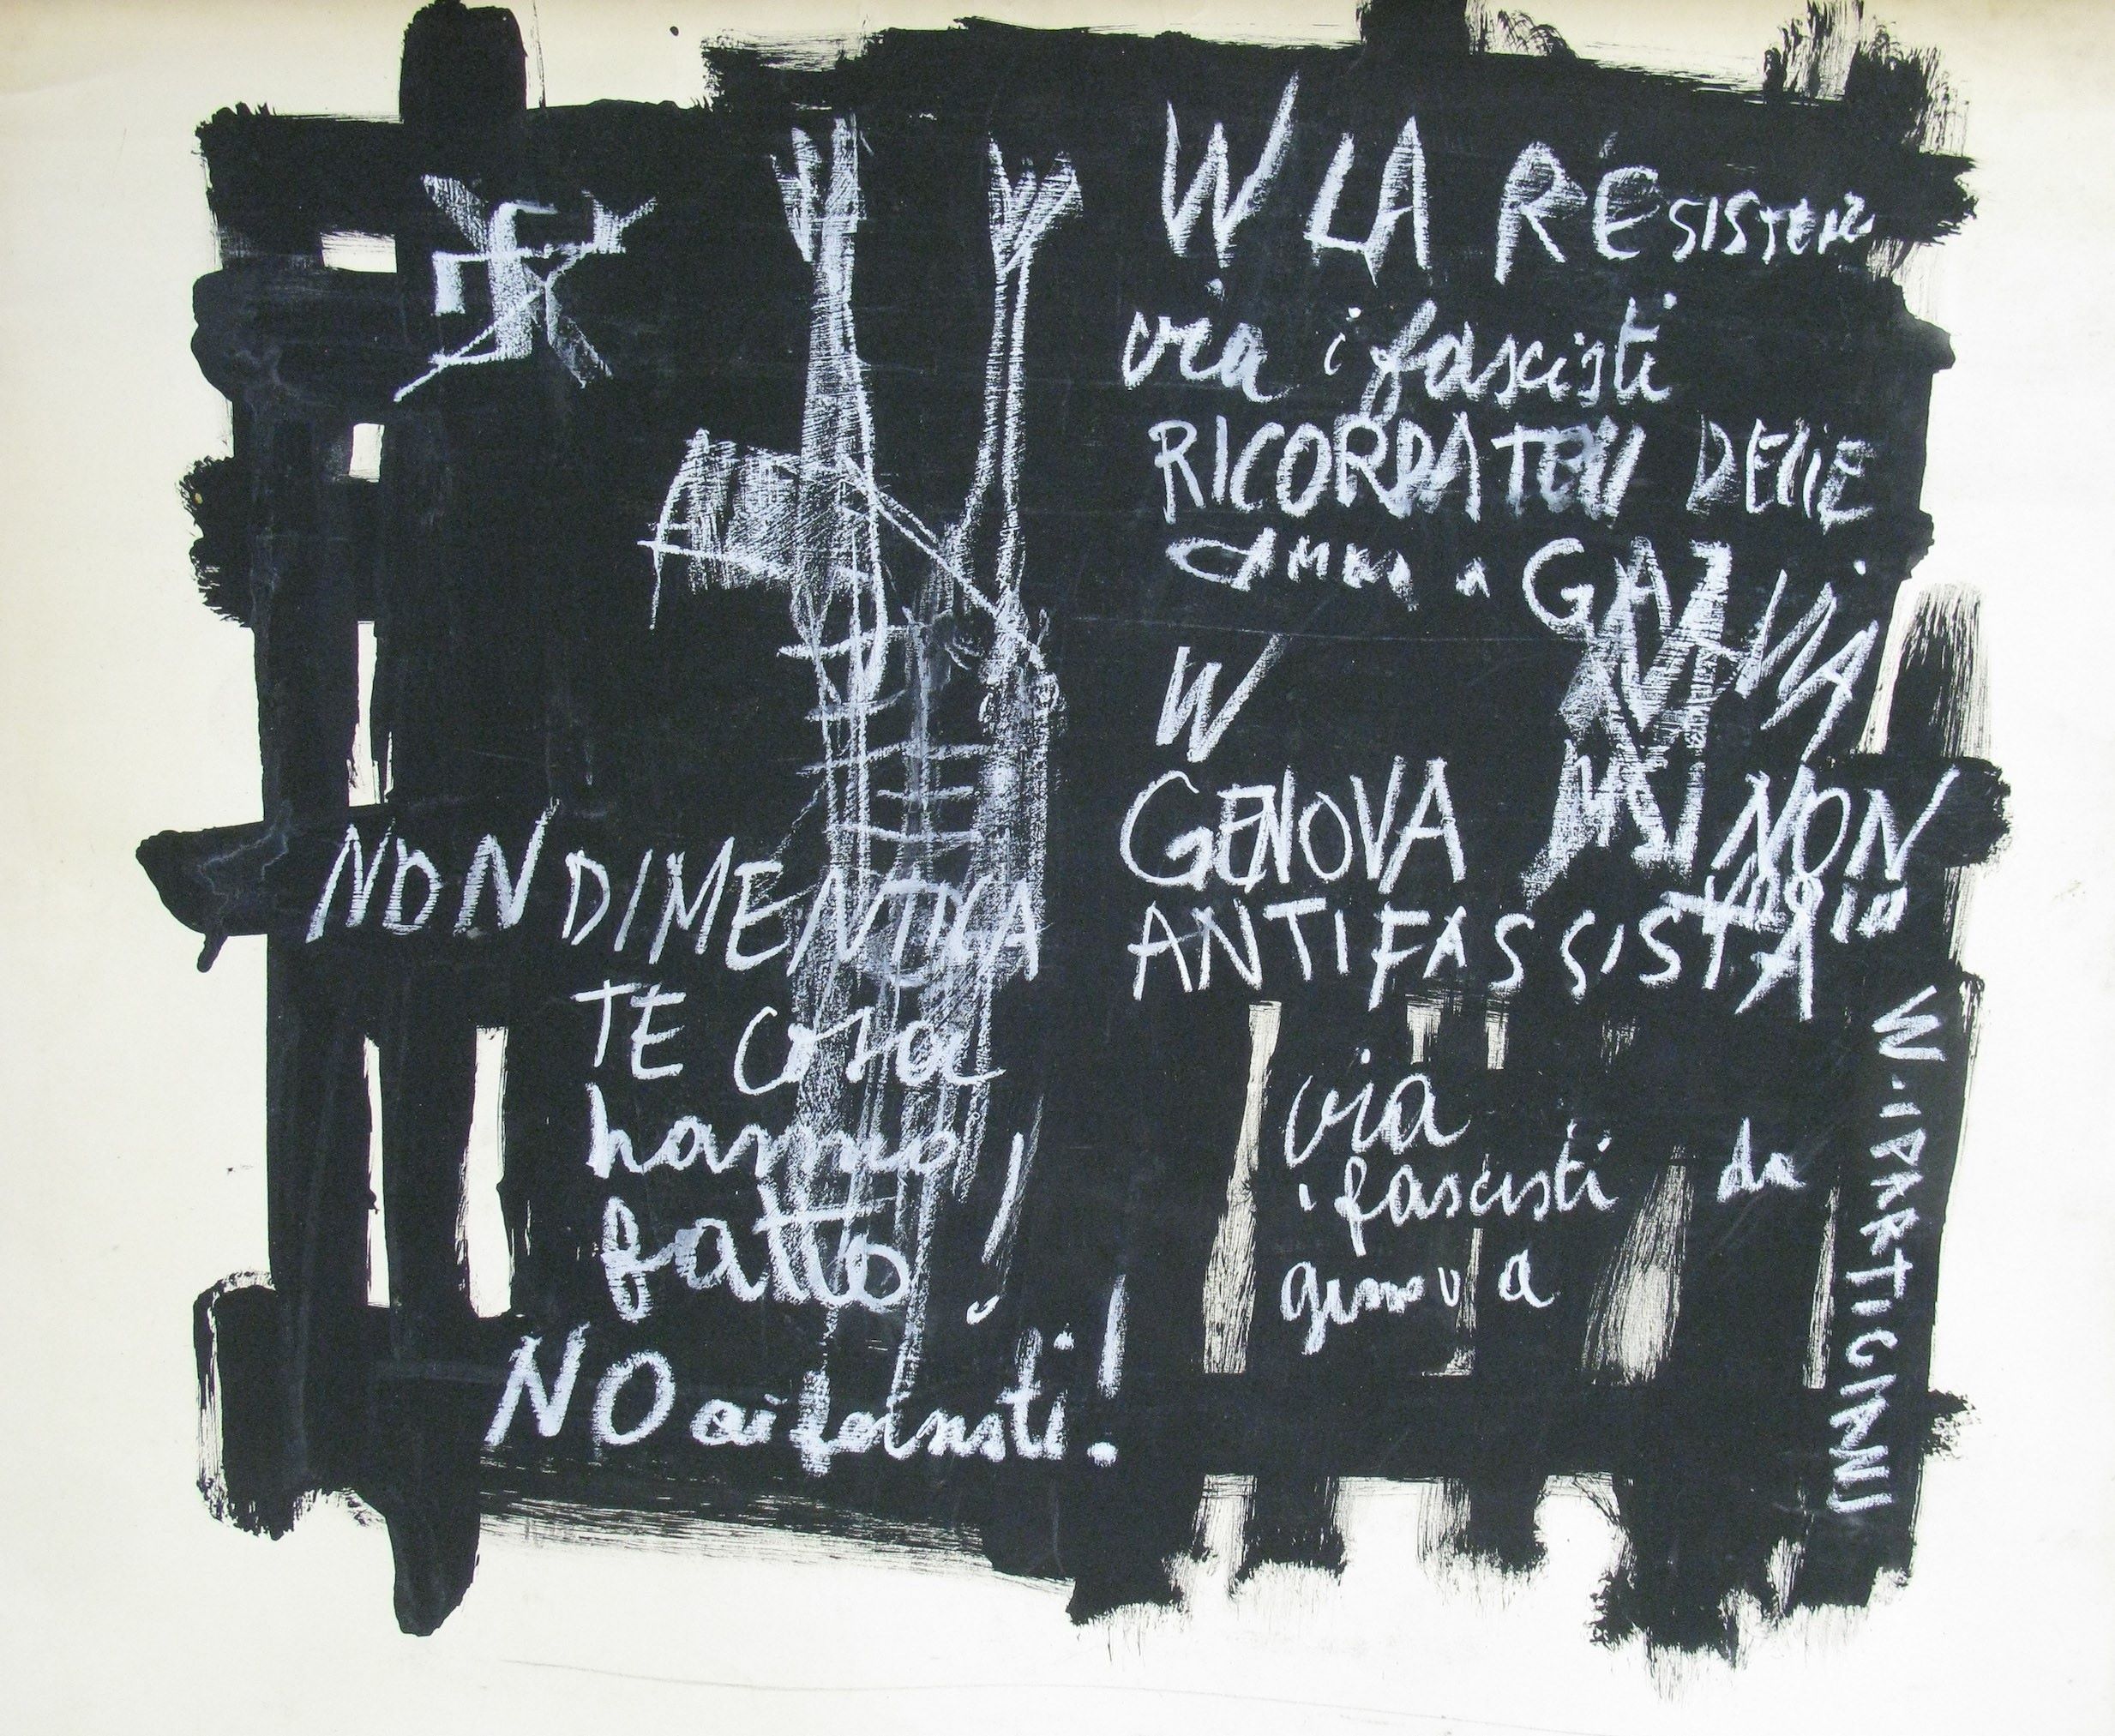 W LA RESISTENZ
via i fascisti
RICORDATEVI DELLE
camere a GAZ VIA
W MSI NON
GENOVA
ANTIFASSISTA
NON DIMENTICA
TE cosa
hanno
fatto!
NO ai fascisti!
via
i fascisti da
genova
W. I PARTIGIANI